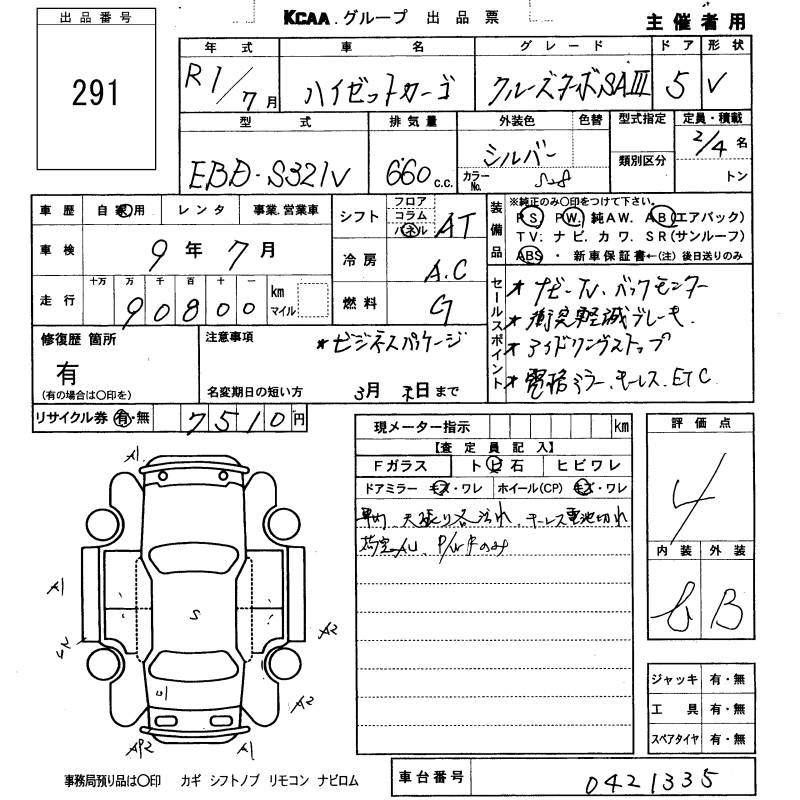 KCAA.グループ 出品票
主催者用
出品番号
291
年式 車名 グレード ドア 形状
R1/7月 ハイゼットカーゴ クルーズターボSAIII 5 V
型式 排気量 外装色 色替 型式指定 定員・積載
EBD-S321V 660c.c. シルバー 2/4名
カラーNo. S28 類別区分 トン
車歴 自家用 レンタ 事業.営業車
車検 9年7月
走行 十万 万 千 百 十 一 km マイル
90800
シフト フロア コラム パネル AT
冷房 A.C
燃料 G
装備品 ※純正のみ○印をつけて下さい。
PS. PW. 純AW. AB(エアバック)
TV. ナビ. カワ. SR(サンルーフ)
ABS ・ 新車保証書←(注) 後日送りのみ
セールスポイント
*ナビ-TV、バックモニター
*衝突軽減ブレーキ
*アイドリングストップ
*電格ミラー、キーレス、ETC
修復歴 箇所
有
(有の場合は○印を)
注意事項 *ビジネスパッケージ
名変期日の短い方 3月末日まで
リサイクル券 有・無 7510円
現メーター指示 km
【査定員記入】
Fガラス トビ石 ヒビワレ
ドアミラー キズ・ワレ ホイール(CP) キズ・ワレ
車内、天張り各汚れ、キーレス電池切れ
P/W Fのみ
評価点
4
内装 外装
B
ジャッキ 有・無
工具 有・無
スペアタイヤ 有・無
A1
A1
S
A2
A2
A1
事務局預り品は○印 カギ シフトノブ リモコン ナビロム
車台番号 0421335